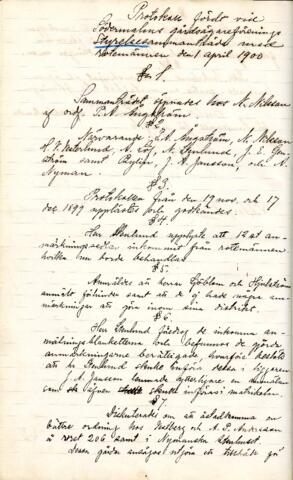 Protokoll fördt vid
Södermalms gårdsägareförenings
Styrelsesammanträde med
rotemännen den 1 april 1900
§ 1.
Sammanträdet öppnades hos N. Nilsson
af ordf. P. A. Ångström
§ 2.
Närvarande: P. A. Ångström, N. Nilsson
A. Löf, N. Stenlund, J. E.
ström samt J. A. Jansson, och A.
Nyman.
§ 3.
Protokollen från den 19 nov. och 17
dec 1899 upplästes och godkändes.
§ 4.
Herr Stenlund upplyste att 12 st an-
märkningssedlar inkommit från rotemännen
hvilka nu borde behandlas
§ 5.
Anmäldes att herrar Sjöblom och
anmält förhinder samt att de ej hade några an-
märkningar att göra inom sina distrikt.
§ 6.
Herr Stenlund föredrog de inkomna an-
mälningsblanketterna och befunnos de gjorda
anmärkningarne berättigade, hvarför beslöts
att hr Stenlund skulle införa detsa i liggaren
J. A. Jansson lemnade ytterligare en anmälan
som äfven skulle införas i matrikeln.
§ 7
Diskuterades om att åstadkomma en
bättre ordning hos och A. P. Andersson
i rote 206 samt i Nymanska stenhuset.